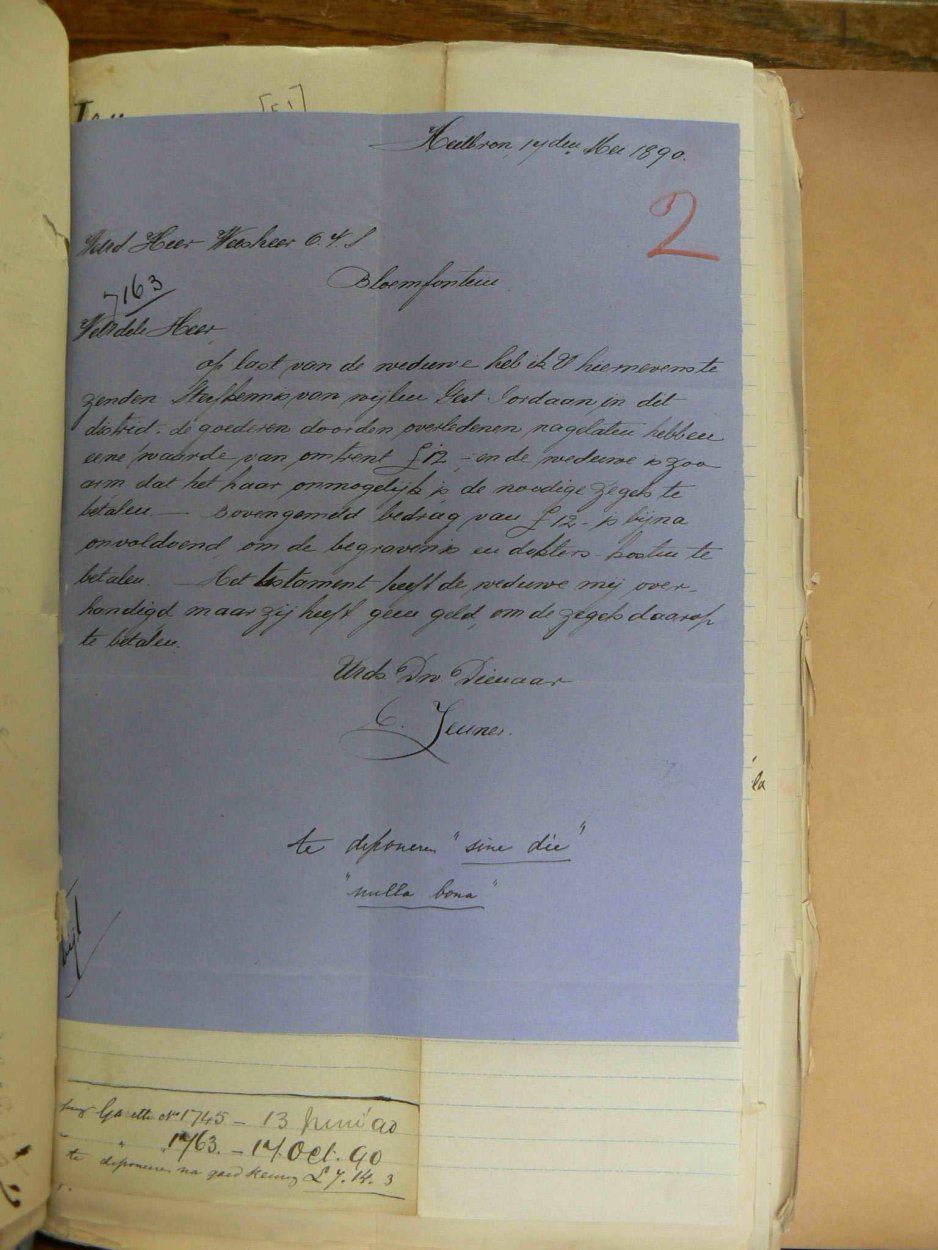 [51]
Heilbron, 17den Mei 1890.
2
WelEd Heer Weesheer O.V.S
Bloemfontein
7163
WelEdele Heer
op last van de weduwe heb ik U hiernevens te
zenden Sterfkennis van wijlen Gert Jordaan in dit
district. de goederen door den overledenen nagelaten hebben
eene waarde van omtrent £12,- en de weduwe is zoo
arm dat het haar onmogelijk is de noodige zegels te
betalen. — Bovengemeld bedrag van £12- is bijna
onvoldoend om de begrafenis en dokters-kosten te
betalen. — Het testament heeft de weduwe mij over-
handigd maar zij heeft geen geld, om de zegels daarop
te betalen.
UEds Dw. Dienaar
C. Jeunes.
te deponeren "sine die"
"nulla bona"
Gazette No 1745 - 13 Juni 90
" 1763. - 17 Oct. 90
te deponeren na goedkeuring £7.14.3